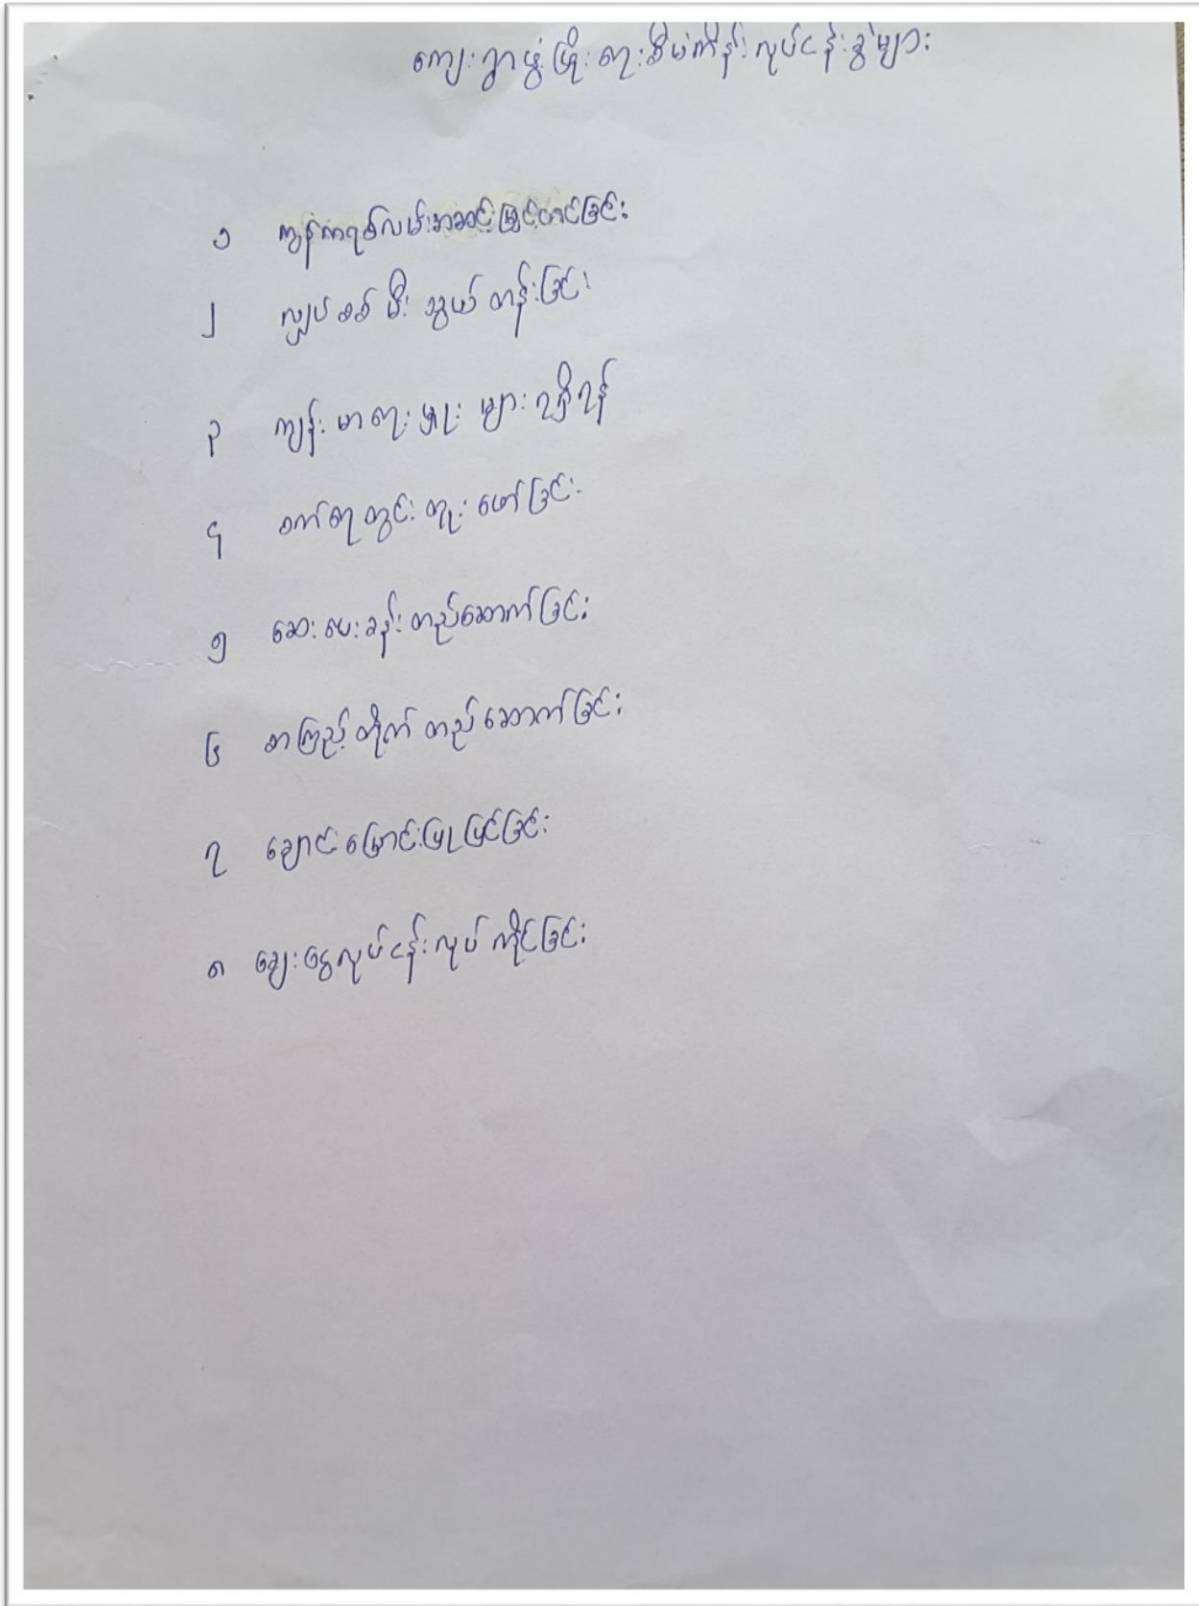 ကျေးရွာဖွံ့ဖြိုးရေးစီမံကိန်းလုပ်ငန်းခွဲများ
၁ ကွန်ကရစ်လမ်းအဆင့်မြှင့်တင်ခြင်း
၂ လျှပ်စစ်မီးသွယ်တန်းခြင်း
၃ ကျန်းမာရေးမှူးများရရှိရန်
၄ စက်ရေတွင်းတူးဖော်ခြင်း
၅ ဆေးပေးခန်းတည်ဆောက်ခြင်း
၆ စာကြည့်တိုက်တည်ဆောက်ခြင်း
၇ ချောင်းမြောင်းပြုပြင်ခြင်း
၈ ချေးငွေလုပ်ငန်းလုပ်ကိုင်ခြင်း